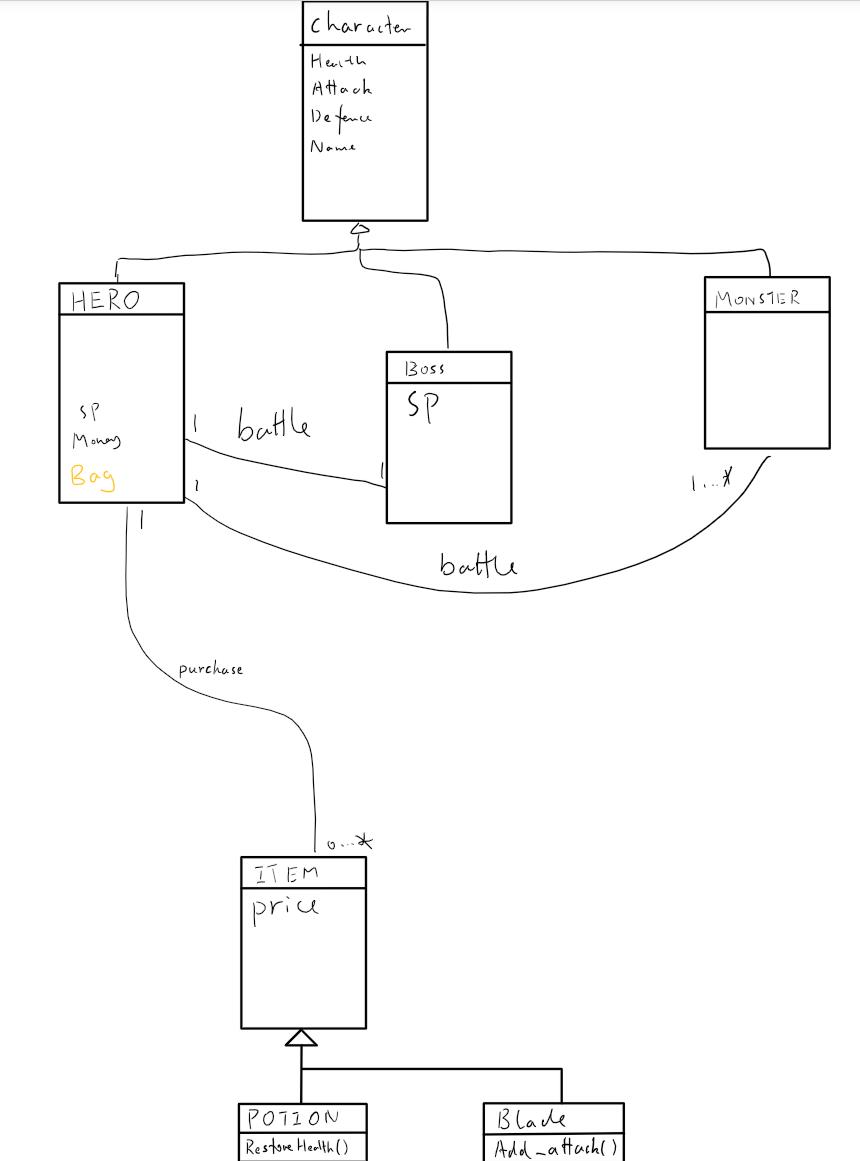 character
Health
Attack
Defence
Name
HERO
SP
Money
Bag
Boss
SP
MONSTER
1
battle
1
1
battle
1...*
1
purchase
0...*
ITEM
price
POTION
RestoreHealth()
Blade
Add_attack()